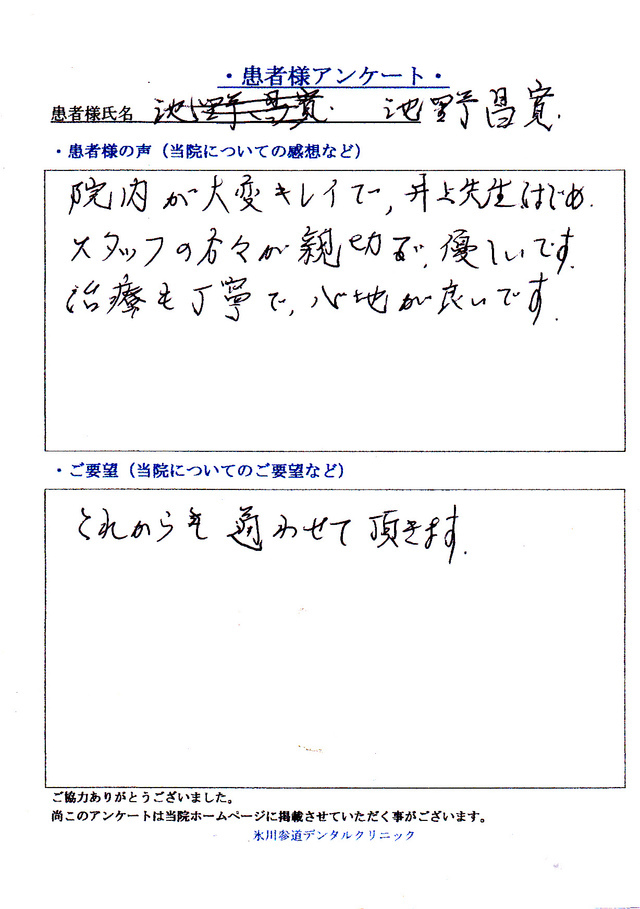 ・患者様アンケート・
患者様氏名 池野昌寛. 池野昌寛.
・患者様の声（当院についての感想など）
院内が大変キレイで, 井上先生はじめ.
スタッフの方々が親切で, 優しいです.
治療も丁寧で, 心地が良いです.
・ご要望（当院についてのご要望など）
これからも通わせて頂きます.
ご協力ありがとうございました。
尚このアンケートは当院ホームページに掲載させていただく事がございます。
氷川参道デンタルクリニック